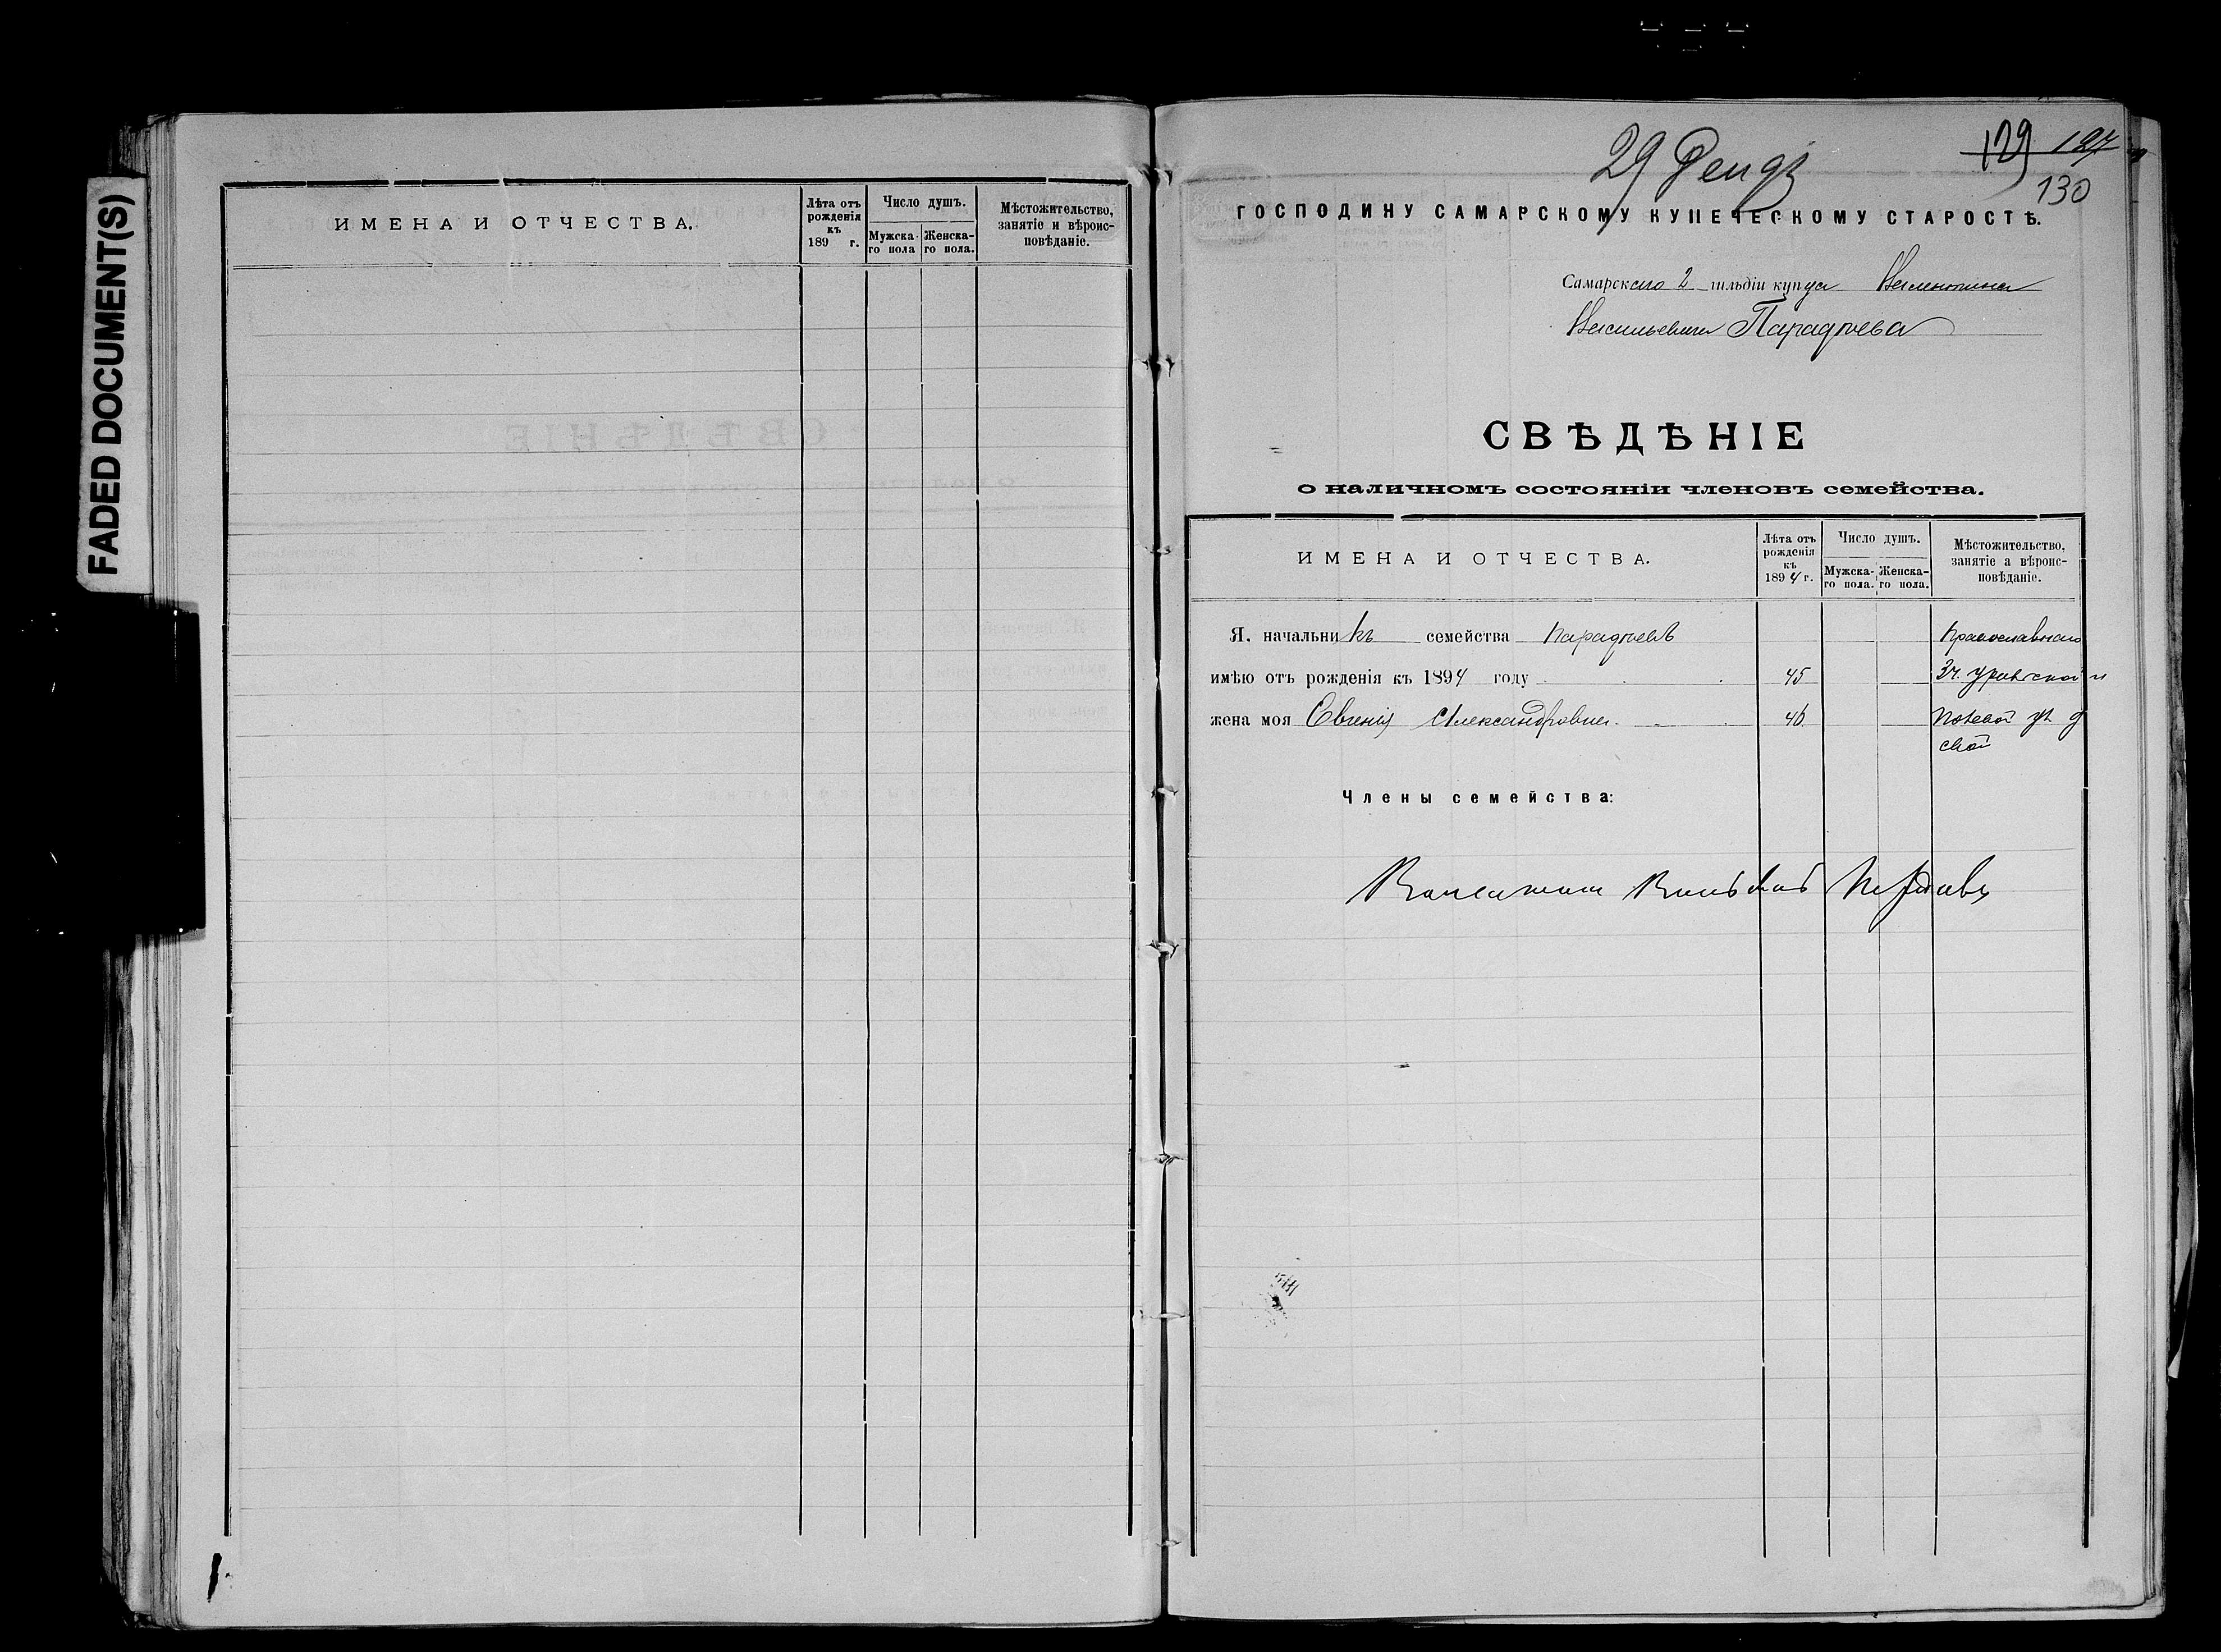 FADED DOCUMENT(S)
ИМЕНА И ОТЧЕСТВА.
Лѣта отъ рожденія къ 189 г.
Число душъ.
Мужска-го пола
Женска-го пола.
Мѣстожительство, занятіе и вѣроис-повѣданіе.
129 127
29
130
ГОСПОДИНУ САМАРСКОМУ КУПЕЧЕСКОМУ СТАРОСТѢ.
Самарскаго 2 гильдіи купца Валентина
Васильевича Парадѣева
СВѢДѢНІЕ
о наличномъ состояніи членовъ семейства.
ИМЕНА И ОТЧЕСТВА.
Лѣта отъ рожденія къ 1894 г.
Число душъ.
Мужска-го пола.
Женска-го пола.
Мѣстожительство, занятіе а вѣроис-повѣданіе.
Я, начальникъ семейства Парадѣевъ Православнаго
имѣю отъ рожденія къ 1894 году 45 3 ч.
жена моя Евгенія Александровна. 46
Члены семейства: